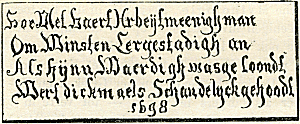 Hoe Met Haert Arbeijt meenigh man
Om Winsten Tergestadigh an
Als hÿna Waerdigh wasge loondt
Wert dickmaels Schandelyckgehoodt
1698